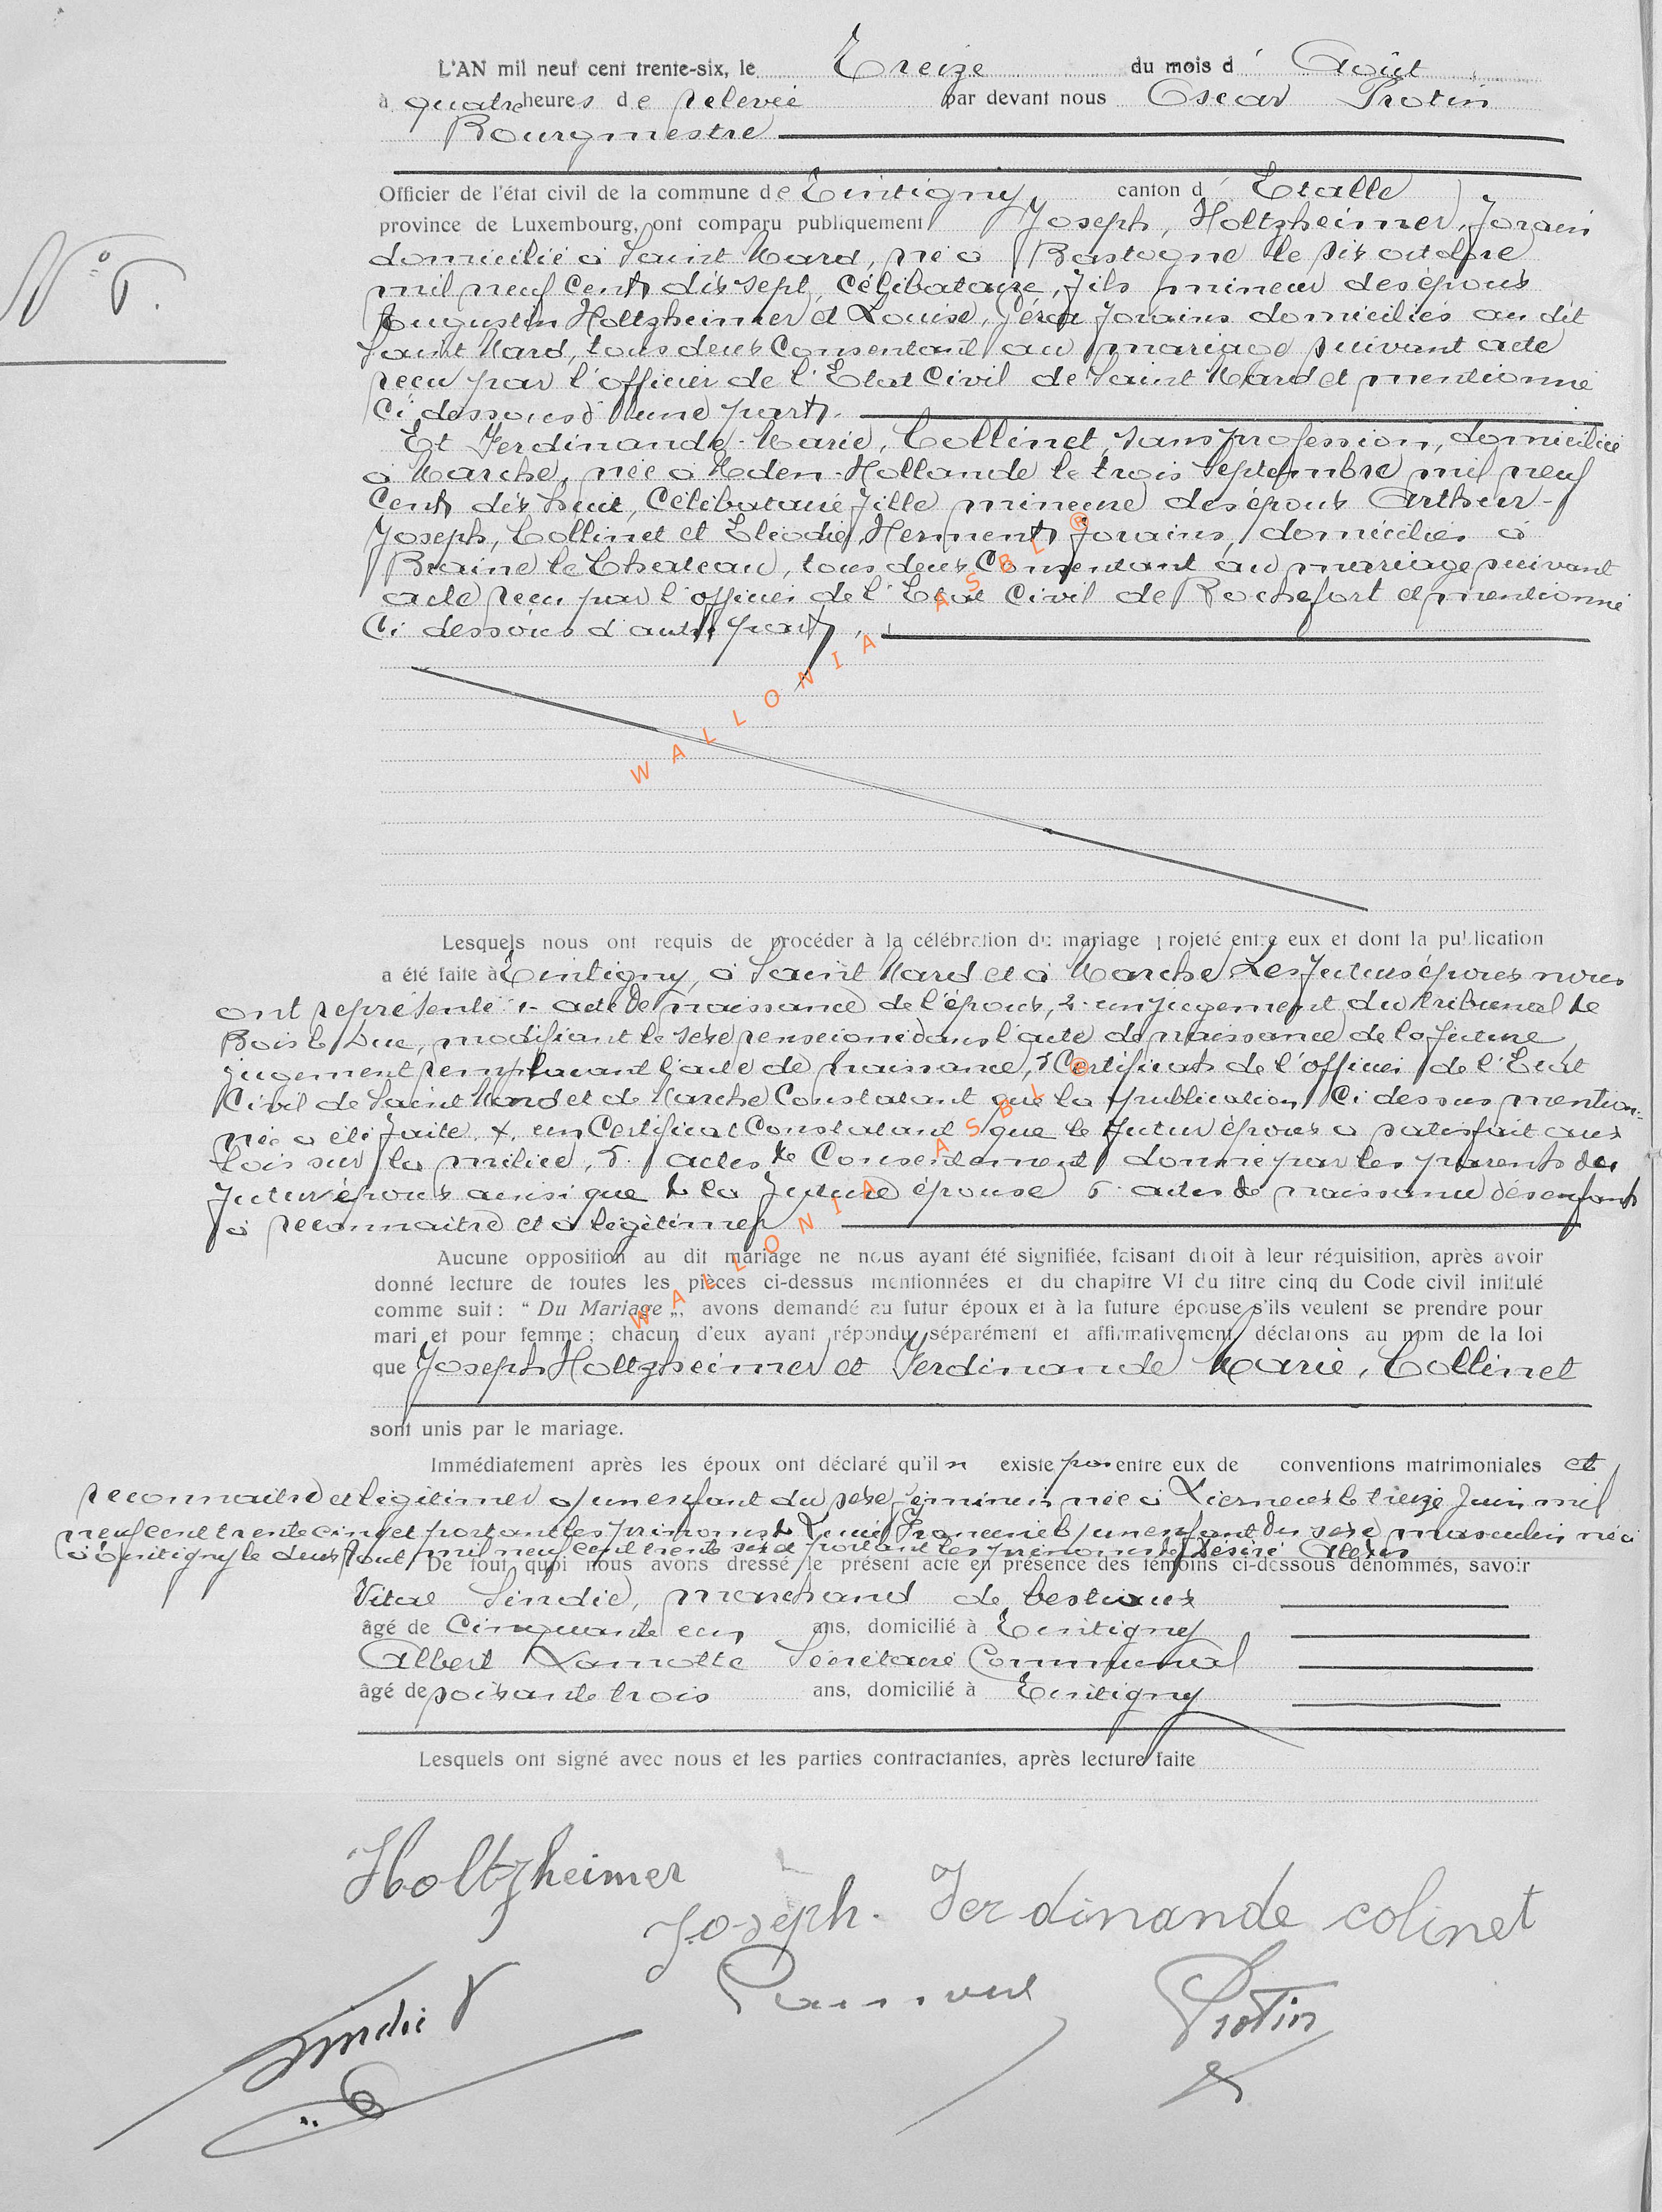 L'AN mil neuf cent trente-six, le Treize du mois d' Août
à quatre heures de relevée par devant nous Oscar Protin
Bourgmestre
Officier de l'état civil de la commune de Tintigny canton d' Etalle
province de Luxembourg, ont comparu publiquement Joseph, Holtzheimer, forain
N° 6.
domicilié à Saint Mard, né à Bastogne le six octobre
mil neuf cent dix sept, célibataire, fils mineur des époux
Augustin Holtzheimer et Louise, forains domiciliés au dit
Saint Mard, tous deux consentant au mariage suivant acte
reçu par l'officier de l'Etat Civil de Saint Mard et mentionné
ci dessous d'une part.
Et Ferdinande-Marie, Collinet, sans profession, domiciliée
à Marche, née à Uden-Hollande le trois septembre mil neuf
cent dix huit, célibataire fille mineure des époux Arthur-
Joseph, Collinet et Elodie, Herment forains, domiciliés à
Braine le Château, tous deux consentant au mariage suivant
acte reçu par l'officier de l'Etat Civil de Rochefort et mentionné
ci dessous d'autre part.
WALLONIA ASBL ®
Lesquels nous ont requis de procéder à la célébration du mariage projeté entre eux et dont la publication
a été faite à Tintigny, à Saint Mard et à Marche Les futurs époux nous
ont représenté 1. acte de naissance de l'époux, 2. un jugement du tribunal de
Bois le Duc, modifiant le sexe renseigné dans l'acte de naissance de la future,
jugement remplaçant l'acte de naissance, 3 Certificats de l'officier de l'Etat
Civil de Saint Mard et de Marche constatant que la publication ci dessus mention-
née a été faite 4. un Certificat constatant que le futur époux a satisfait aux
lois sur la milice, 5. actes de consentement donné par les parents du
futur époux ainsi que de la future épouse 6. actes de naissance des enfants
à reconnaitre et à légitimer
WALLONIA ASBL ®
Aucune opposition au dit mariage ne nous ayant été signifiée, faisant droit à leur réquisition, après avoir
donné lecture de toutes les pièces ci-dessus mentionnées et du chapitre VI du titre cinq du Code civil intitulé
comme suit : “ Du Mariage „, avons demandé au futur époux et à la future épouse s'ils veulent se prendre pour
mari et pour femme ; chacun d'eux ayant répondu séparément et affirmativement, déclarons au nom de la loi
que Joseph Holtzheimer et Ferdinande Marie, Collinet
sont unis par le mariage.
Immédiatement après les époux ont déclaré qu'il n existe pas entre eux de conventions matrimoniales et
reconnaitre et légitimer a/ un enfant du sexe féminin née à Lierneux le treize Juin mil
neuf cent trente cinq et portant les prénoms de b/ un enfant du sexe masculin né
à Tintigny le deux Août mil neuf cent trente six et portant les prénoms de Désiré Alexis
De tout quoi nous avons dressé le présent acte en présence des témoins ci-dessous dénommés, savoir
Vital Sindic, marchand de bestiaux
âgé de Cinquante cinq ans, domicilié à Tintigny
Albert Lamotte Secrétaire Communal
âgé de soixante trois ans, domicilié à Tintigny
Lesquels ont signé avec nous et les parties contractantes, après lecture faite
Holtzheimer
Joseph. Ferdinande colinet
Sindic V
Protin